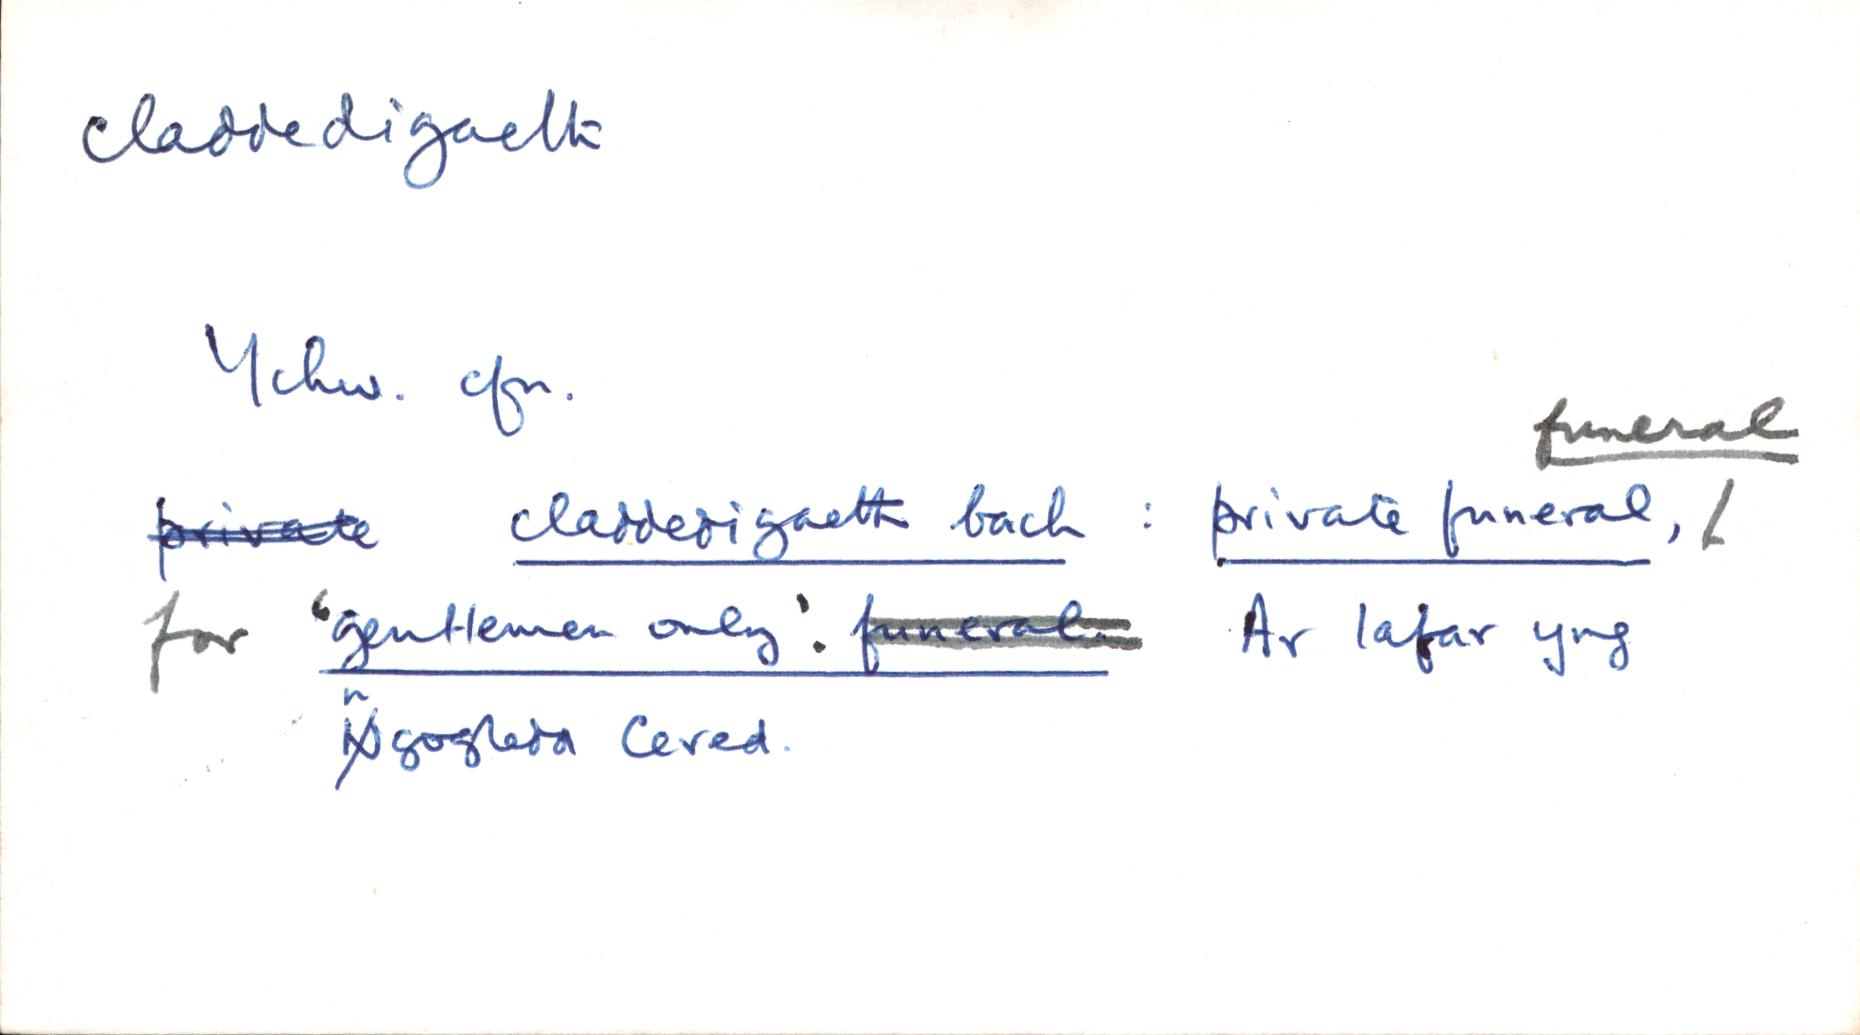 claddedigaeth
Ychw. cfn.
funeral
private claddedigaeth bach : private funeral,
for 'gentlemen only'. funeral. Ar lafar yng
ngogledd Cered.